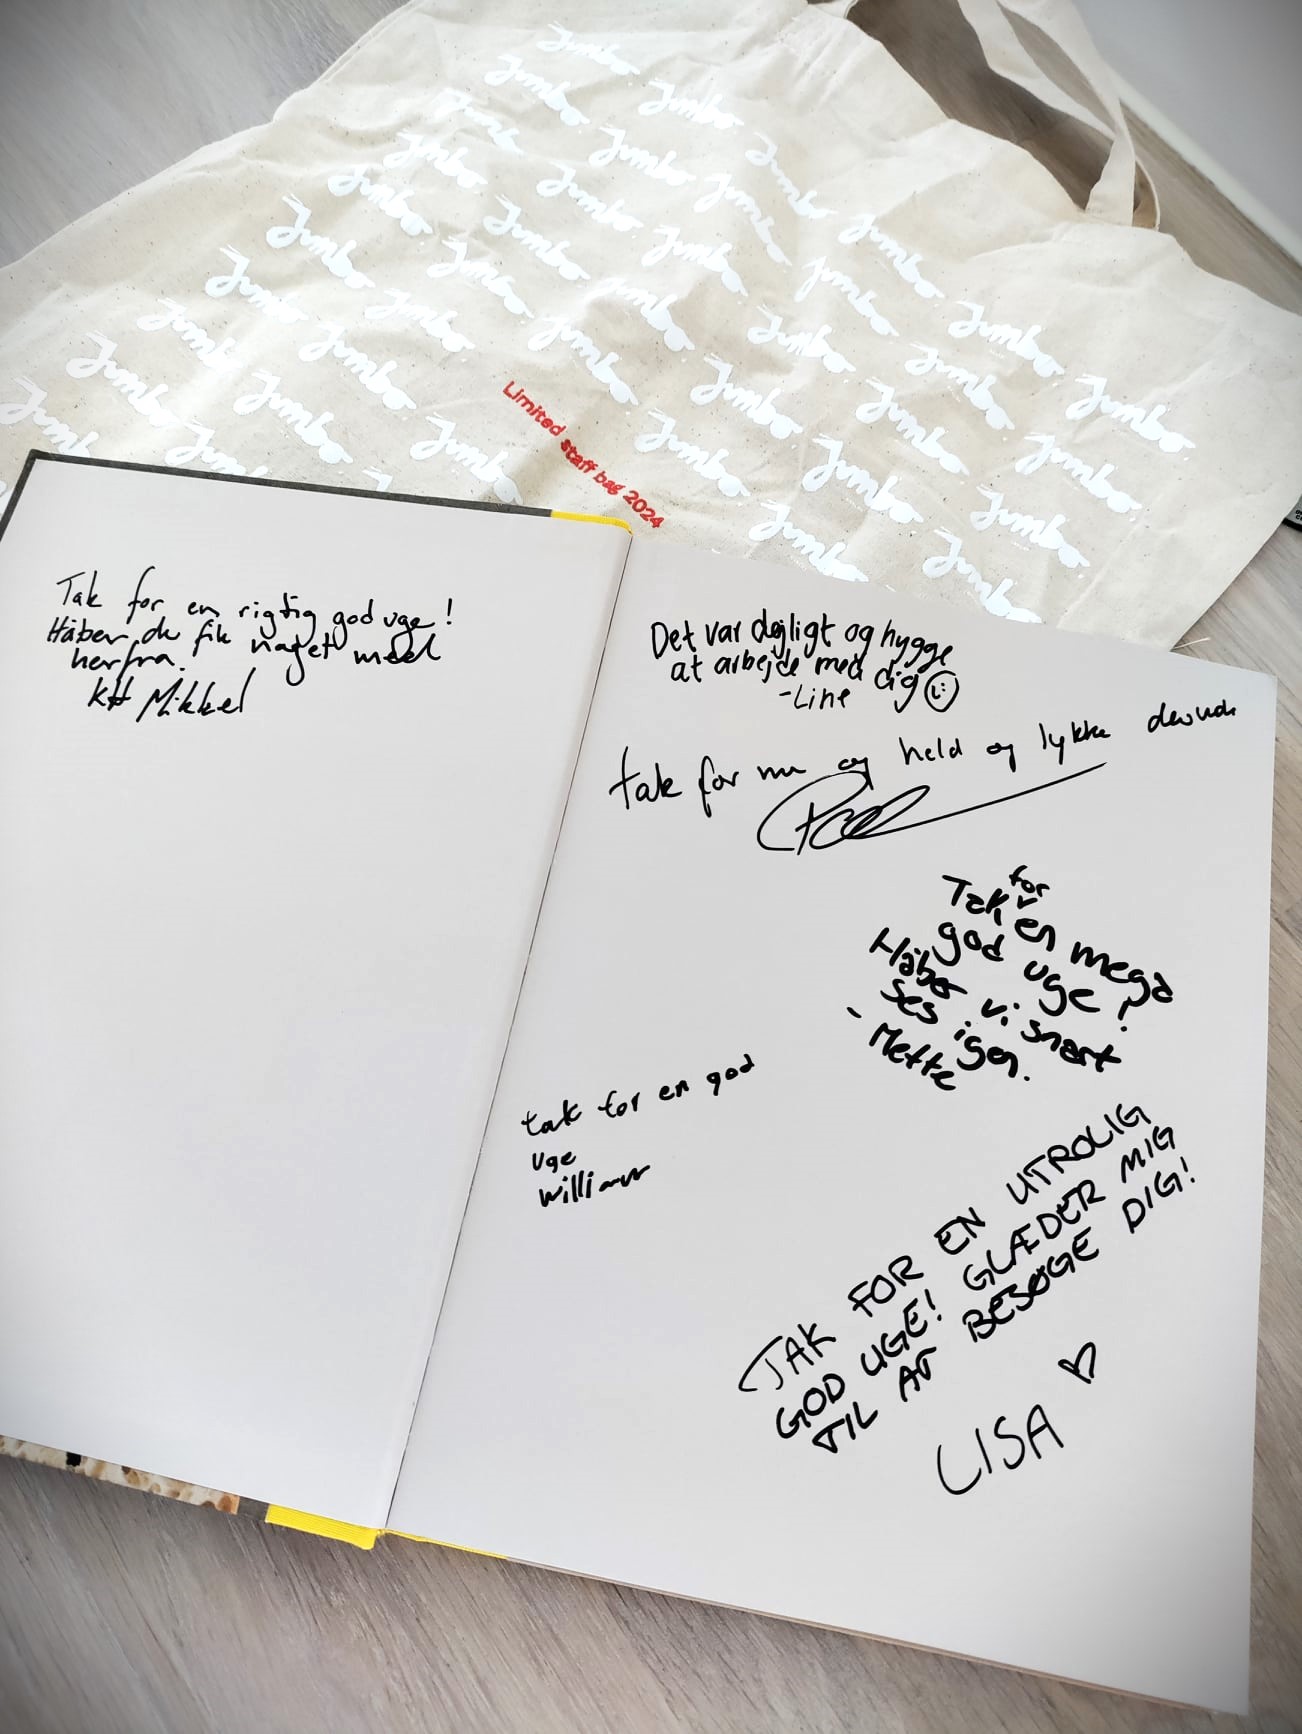 Jumbo
Limited staff bag 2024
Tak for en rigtig god uge!
Håber du fik noget med
herfra.
KH Mikkel
Det var dejligt og hygge
at arbejde med dig
-Line
tak for nu og held og lykke
Tak for en megd
god uge!
Håber vi snart
ses igen.
- Mette
tak for en god
uge
William
TAK FOR EN UTROLIG
GOD UGE! GLÆDER MIG
TIL AT BESØGE DIG!
LISA